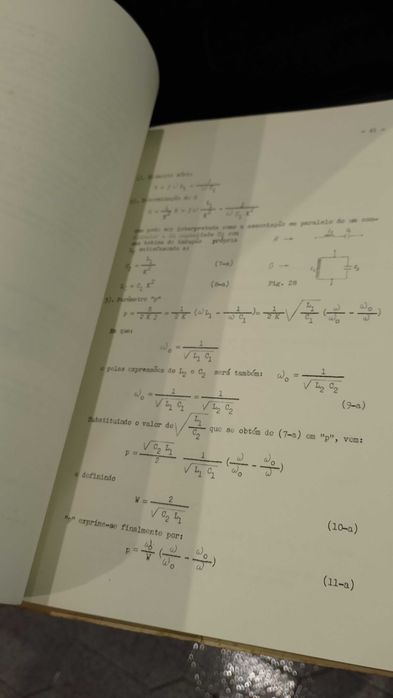 - 41 -
1). Elemento série:
2). Determinação de S
que pode ser interpretada como a associação em paralelo de um con-
uma bobina de indução própria
L₂ satisfazendo a:
A →
C₂ = L₁/K² (7-a)
S →
L₂ = C₁ K² (8-a) Fig. 28
3). Parâmetro "p"
p = Z/(2 K j) = 1/(2 K) (ωL₁ - 1/(ω C₁)) = 1/(2 K) √(L₁/C₁) (ω/ω₀ - ω₀/ω)
Em que:
ω₀ = 1/√(L₁ C₁)
e pelas expressões de L₂ e C₂ será também: ω₀ = 1/√(L₂ C₂)
ω₀ = 1/√(L₁ C₁) = 1/√(L₂ C₂) (9-a)
Substituindo o valor de √(L₁/C₂) que se obtém de (7-a) em "p", vem:
p = √(C₂ L₁)/2 1/√(L₁ C₁) (ω/ω₀ - ω₀/ω)
e definindo
W = 2/√(C₂ L₁) (10-a)
"p" exprime-se finalmente por:
p = ω₀/W (ω/ω₀ - ω₀/ω) (11-a)